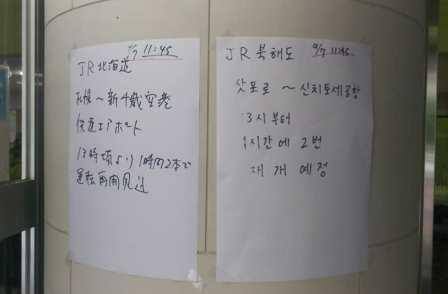 9/7 11:45
JR北海道
札幌〜新千歳空港
快速エアポート
13時頃より1時間2本で
運転再開見込
JR 북해도 9/7 11:45
삿포로 ~ 신치토세공항
13시부터
1시간에 2번
재개 예정